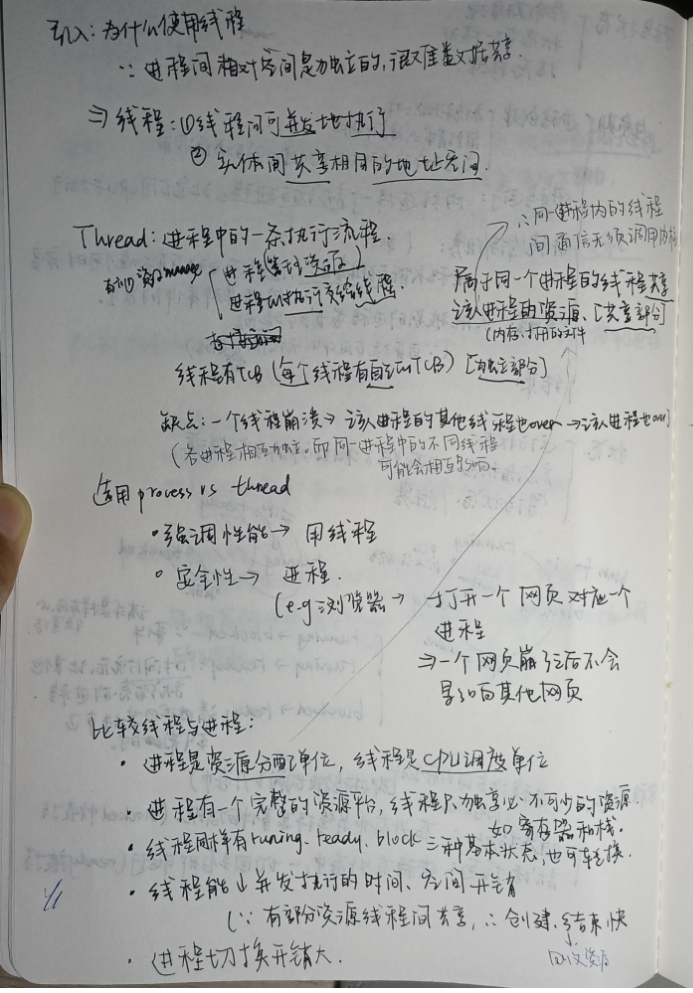 引入：为什么使用线程
∵ 进程间相对空间是独立的，很难数据共享.
⇒ 线程：①线程间可并发地执行
② 实体间共享相同的地址空间.
Thread：进程中的一条执行流程.
∴同一进程内的线程
间通信无须调用内核
进程(管理资源)
进程的执行交给线程
属于同一个进程的线程共享
该进程的资源. [共享部分]
(内存.打开的文件
线程有TCB (每个线程有自己的TCB) [独立部分]
缺点：一个线程崩溃→该进程的其他线程也over→该进程也over
(各进程相互独立.而同一进程中的不同线程
可能会相互影响.
适用process vs thread
• 强调性能→ 用线程
• 安全性→ 进程.
(e.g：浏览器→ 打开一个网页对应一个
进程
⇒一个网页崩了后不会
影响其他网页
比较线程与进程：
• 进程是资源分配单位，线程是CPU调度单位
• 进程有一个完整的资源平台，线程只独享必不可少的资源.
如 寄存器和栈.
• 线程同样有runing、ready、block 三种基本状态，也可转换.
• 线程能↓并发执行的时间、空间开销
(∵ 有部分资源线程间共享，∴ 创建、结束快
回收资源
• 进程切换开销大.